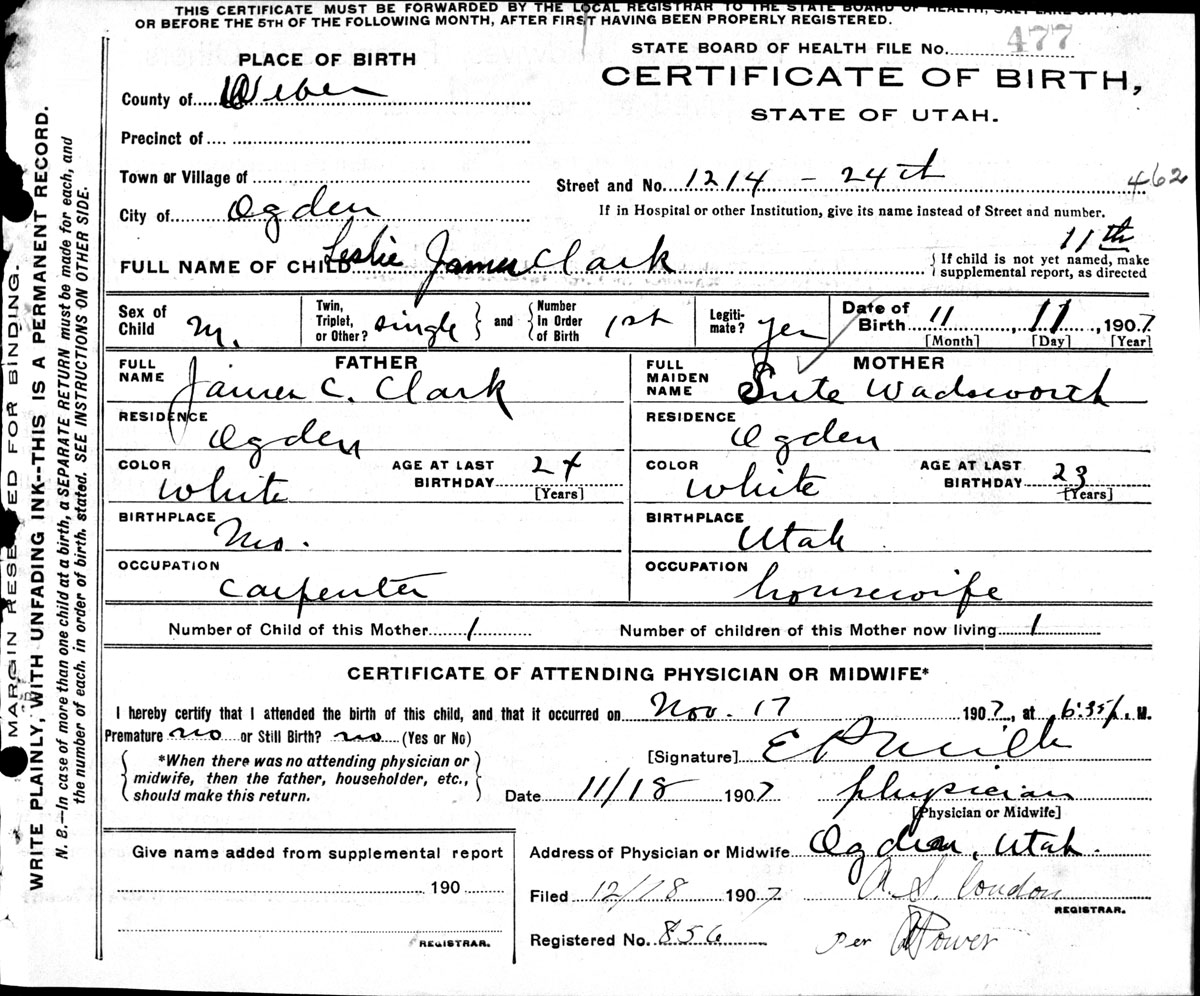 THIS CERTIFICATE MUST BE FORWARDED BY THE LOCAL REGISTRAR TO THE STATE BOARD OF HEALTH, SALT LAKE CITY, ON
OR BEFORE THE 5TH OF THE FOLLOWING MONTH, AFTER FIRST HAVING BEEN PROPERLY REGISTERED.
STATE BOARD OF HEALTH FILE No. 477
PLACE OF BIRTH
CERTIFICATE OF BIRTH,
STATE OF UTAH.
County of Weber
Precinct of
Town or Village of
Street and No. 1214 - 24th 462
City of Ogden
If in Hospital or other Institution, give its name instead of Street and number.
11th
FULL NAME OF CHILD Leslie James Clark
If child is not yet named, make
supplemental report, as directed
Sex of Child M.
Twin, Triplet, or Other? single and Number In Order of Birth 1st
Legiti-mate? yes
Date of Birth 11, 11, 1907
[Month] [Day] [Year]
FATHER
FULL NAME James C. Clark
RESIDENCE
Ogden
COLOR white AGE AT LAST BIRTHDAY 24
[Years]
BIRTHPLACE
Mo.
OCCUPATION
carpenter
MOTHER
FULL MAIDEN NAME Wadsworth
RESIDENCE
Ogden
COLOR white AGE AT LAST BIRTHDAY 23
[Years]
BIRTHPLACE
Utah
OCCUPATION
housewife
Number of Child of this Mother 1 Number of children of this Mother now living 1
CERTIFICATE OF ATTENDING PHYSICIAN OR MIDWIFE*
I hereby certify that I attended the birth of this child, and that it occurred on Nov. 17 1907, at 6:35 p. M.
Premature no or Still Birth? no (Yes or No)
*When there was no attending physician or
midwife, then the father, householder, etc.,
should make this return.
[Signature] E P Mills
Date 11/18 1907 physician
[Physician or Midwife]
Give name added from supplemental report
190
REGISTRAR.
Address of Physician or Midwife Ogden, Utah.
Filed 12/18 1907 A. S. Condon
REGISTRAR.
Registered No. 856 per Power
MARGIN RESERVED FOR BINDING.
WRITE PLAINLY, WITH UNFADING INK--THIS IS A PERMANENT RECORD.
N. B.—In case of more than one child at a birth, a SEPARATE RETURN must be made for each, and
the number of each, in order of birth, stated. SEE INSTRUCTIONS ON OTHER SIDE.